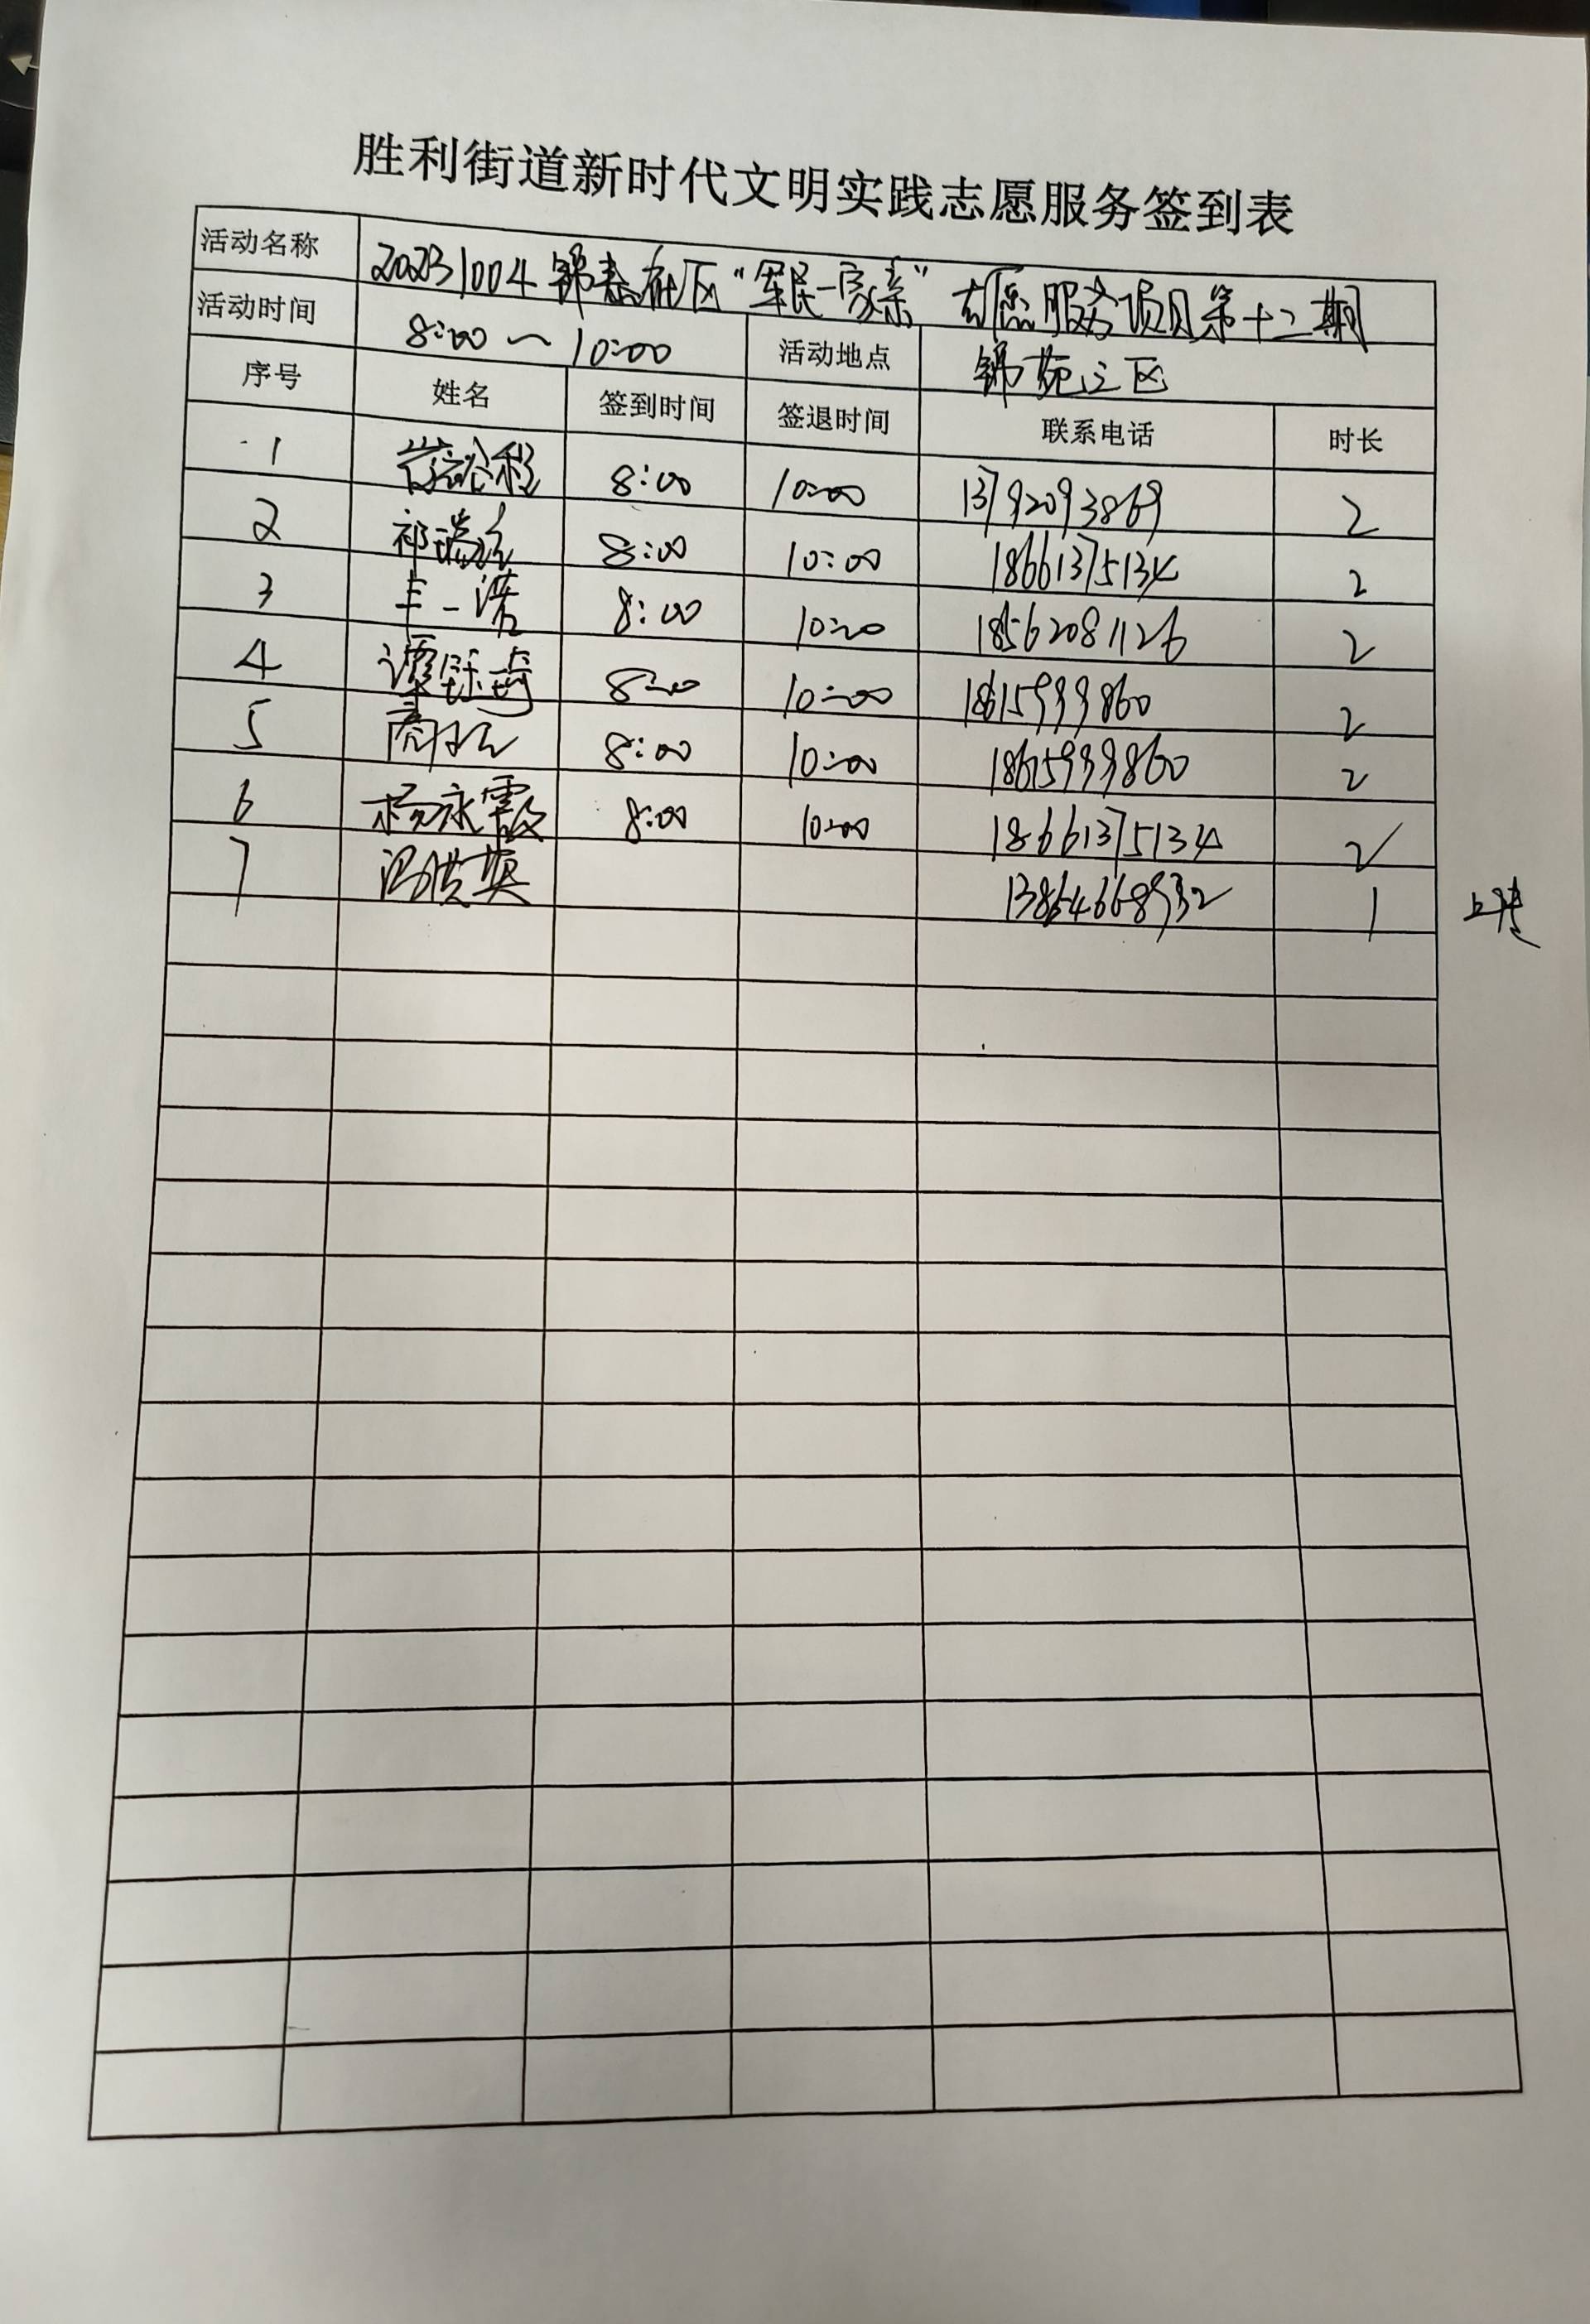 胜利街道新时代文明实践志愿服务签到表
活动名称 20231004 锦泰社区“军民一家亲”志愿服务项目第十二期
活动时间 8:00～10:00 活动地点 锦苑三区
序号 姓名 签到时间 签退时间 联系电话 时长
1 8:00 10:00 13792093869 2
2 祁瑞 8:00 10:00 18661375134 2
3 丰一诺 8:00 10:00 18562081126 2
4 谭钰琦 8:00 10:00 18615999860 2
5 商 8:00 10:00 18615999860 2
6 杨永霞 8:00 10:00 18661375134 2
7 冯洪英 13864668932 1 上传